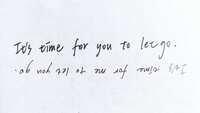 It's time for you to let go.
It's time for me to let you go.